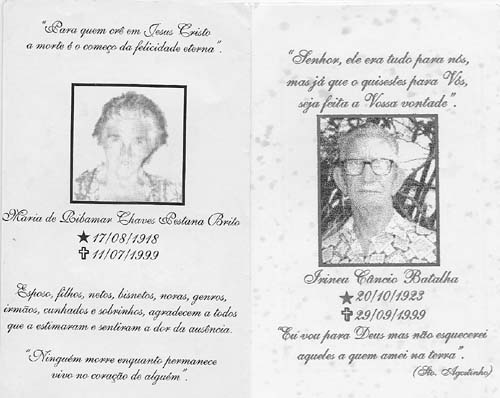 "Para quem crê em Jesus Cristo
a morte é o começo da felicidade eterna".
Maria de Ribamar Chaves Pestana Brito
★ 17/08/1918
✞ 11/07/1999
Esposo, filhos, netos, bisnetos, noras, genros,
irmãos, cunhados e sobrinhos, agradecem a todos
que a estimaram e sentiram a dor da ausência.
"Ninguém morre enquanto permanece
vivo no coração de alguém".
"Senhor, ele era tudo para nós,
mas já que o quisestes para Vós,
seja feita a Vossa vontade".
Irineu Câncio Batalha
★ 20/10/1923
✞ 29/09/1999
"Eu vou para Deus mas não esquecerei
aqueles a quem amei na terra".
(Sto. Agostinho)